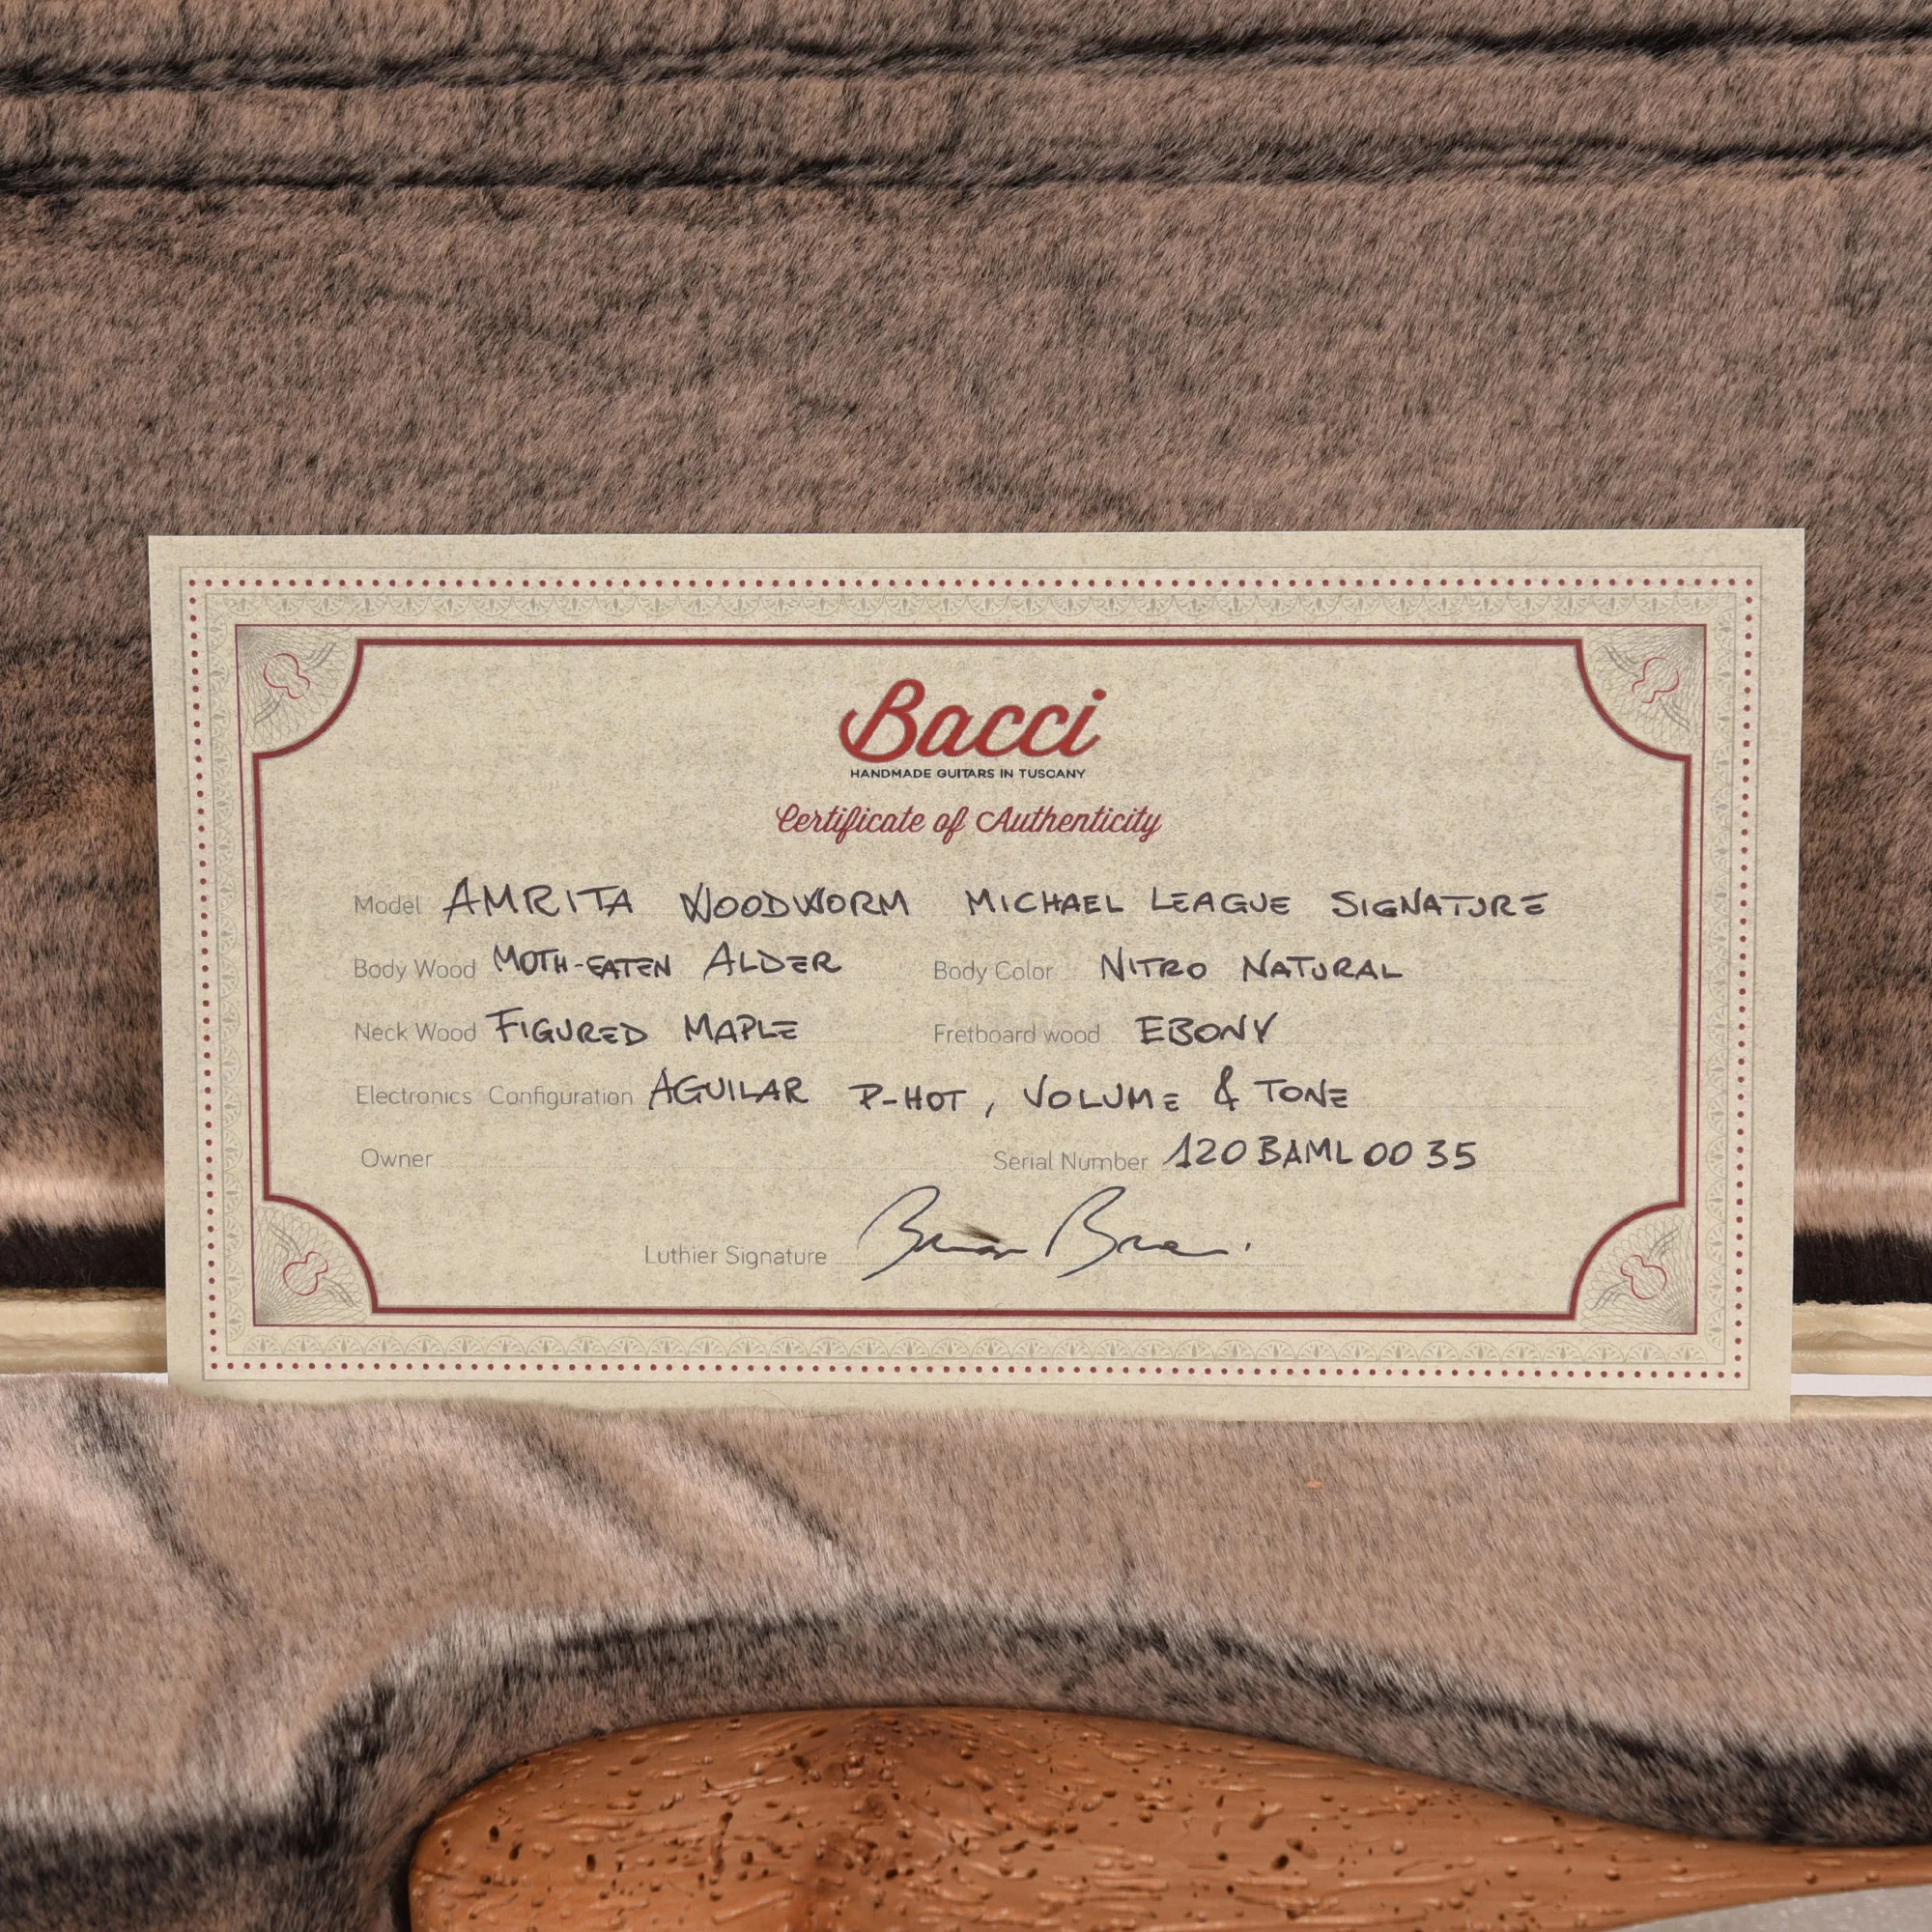 Bacci
HANDMADE GUITARS IN TUSCANY
Certificate of Authenticity
Model AMRITA WOODWORM MICHAEL LEAGUE SIGNATURE
Body Wood MOTH-EATEN ALDER Body Color NITRO NATURAL
Neck Wood FIGURED MAPLE Fretboard wood EBONY
Electronics Configuration AGUILAR P-HOT, VOLUME & TONE
Owner Serial Number 120BAML0035
Luthier Signature